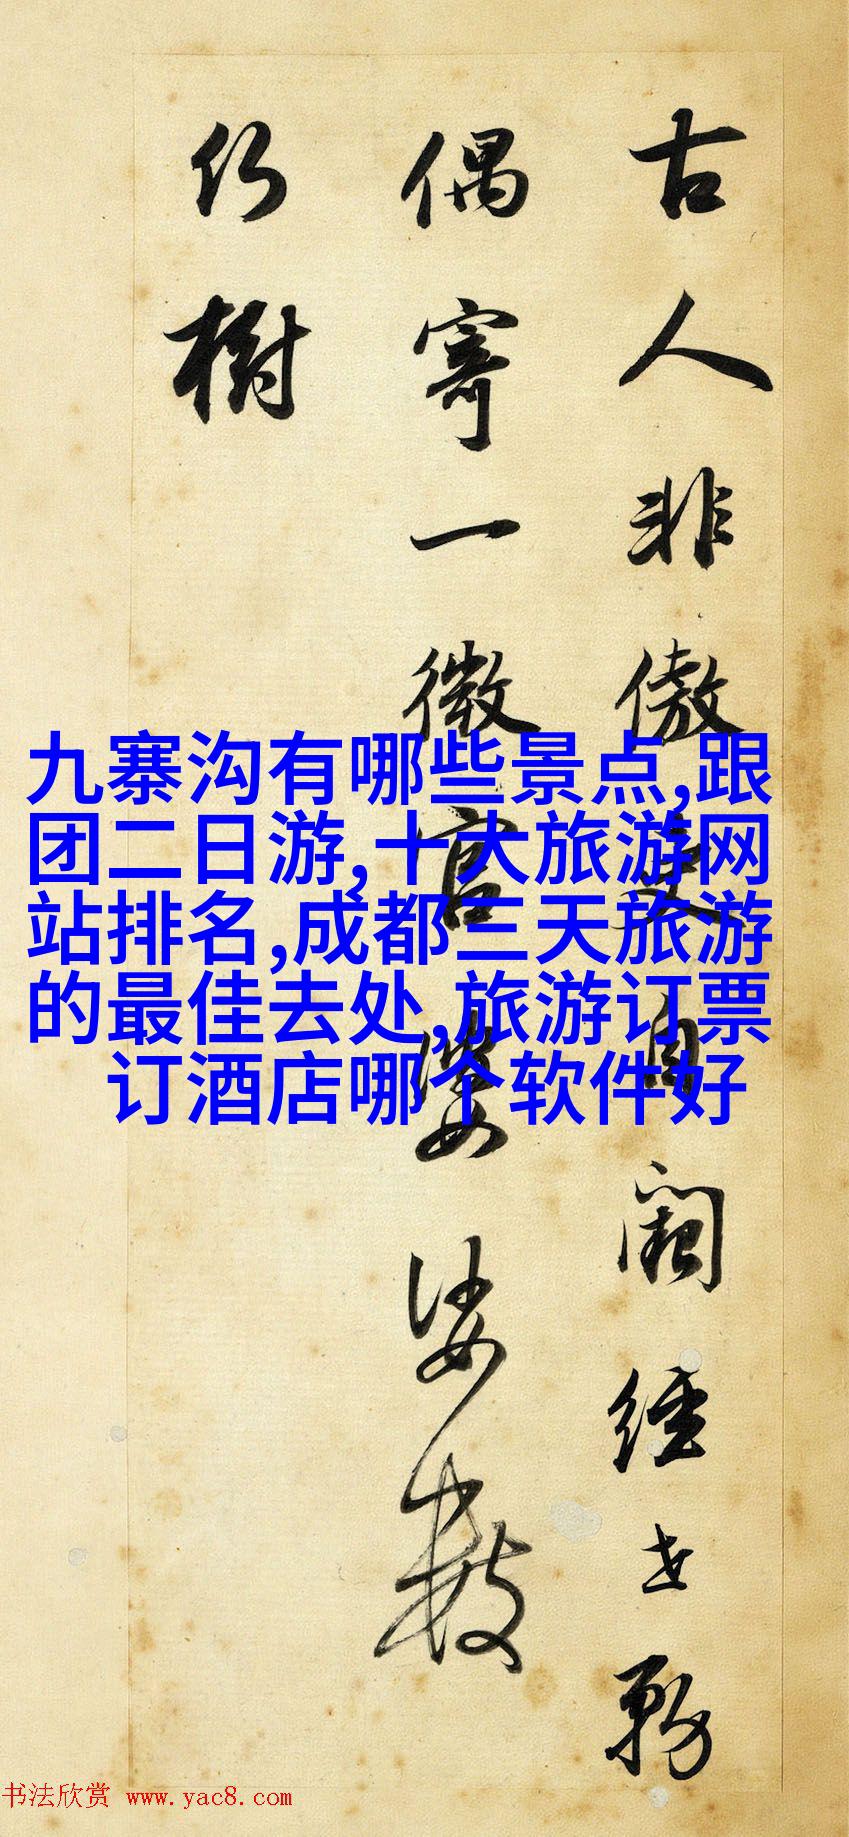 古人非傲吏自闕經世務
偶寄一微官婆娑數
樹
九寨沟有哪些景点,跟
团二日游,十大旅游网
站排名,成都三天旅游
的最佳去处,旅游订票
订酒店哪个软件好
书法欣赏 www.yac8.com